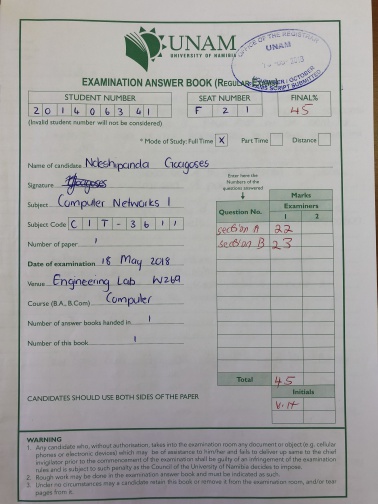 UNAM
UNIVERSITY OF NAMIBIA
OFFICE OF THE REGISTRAR
UNAM
EXAMINATION ANSWER BOOK (REGULAR
STUDENT NUMBER
SEAT NUMBER
FINAL%
2 0 1 4 0 6 3 4 1
F 2 1
45
(Invalid student number will not be considered)
* Mode of Study: Full Time X Part Time Distance
Name of candidate Ndeshipanda
Signature
Subject Computer Networks 1
Subject Code C I T - 3 6 1 1
Number of paper 1
Date of examination 18 May 2018
Venue Engineering Lab W269
Course (B.A., B.Com) Computer
Number of answer books handed in 1
Number of this book 1
Enter here the Numbers of the questions answered
Question No.
Marks
Examiners
1 2
section A 22
section B 23
Total 45
Initials
V.H
CANDIDATES SHOULD USE BOTH SIDES OF THE PAPER
WARNING
1. Any candidate who, without authorisation, takes into the examination room any document or object (e.g. cellular
phones or electronic devices) which may be of assistance to him/her and fails to deliver up same to the chief
invigilator prior to the commencement of the examination shall be guilty of an infringement of the examination
rules and is subject to such penalty as the Council of the University of Namibia decides to impose.
2. Rough work may be done in the examination answer book and must be indicated as such.
3. Under no circumstances may a candidate retain this book or remove it from the examination room, and/or tear
pages from it.